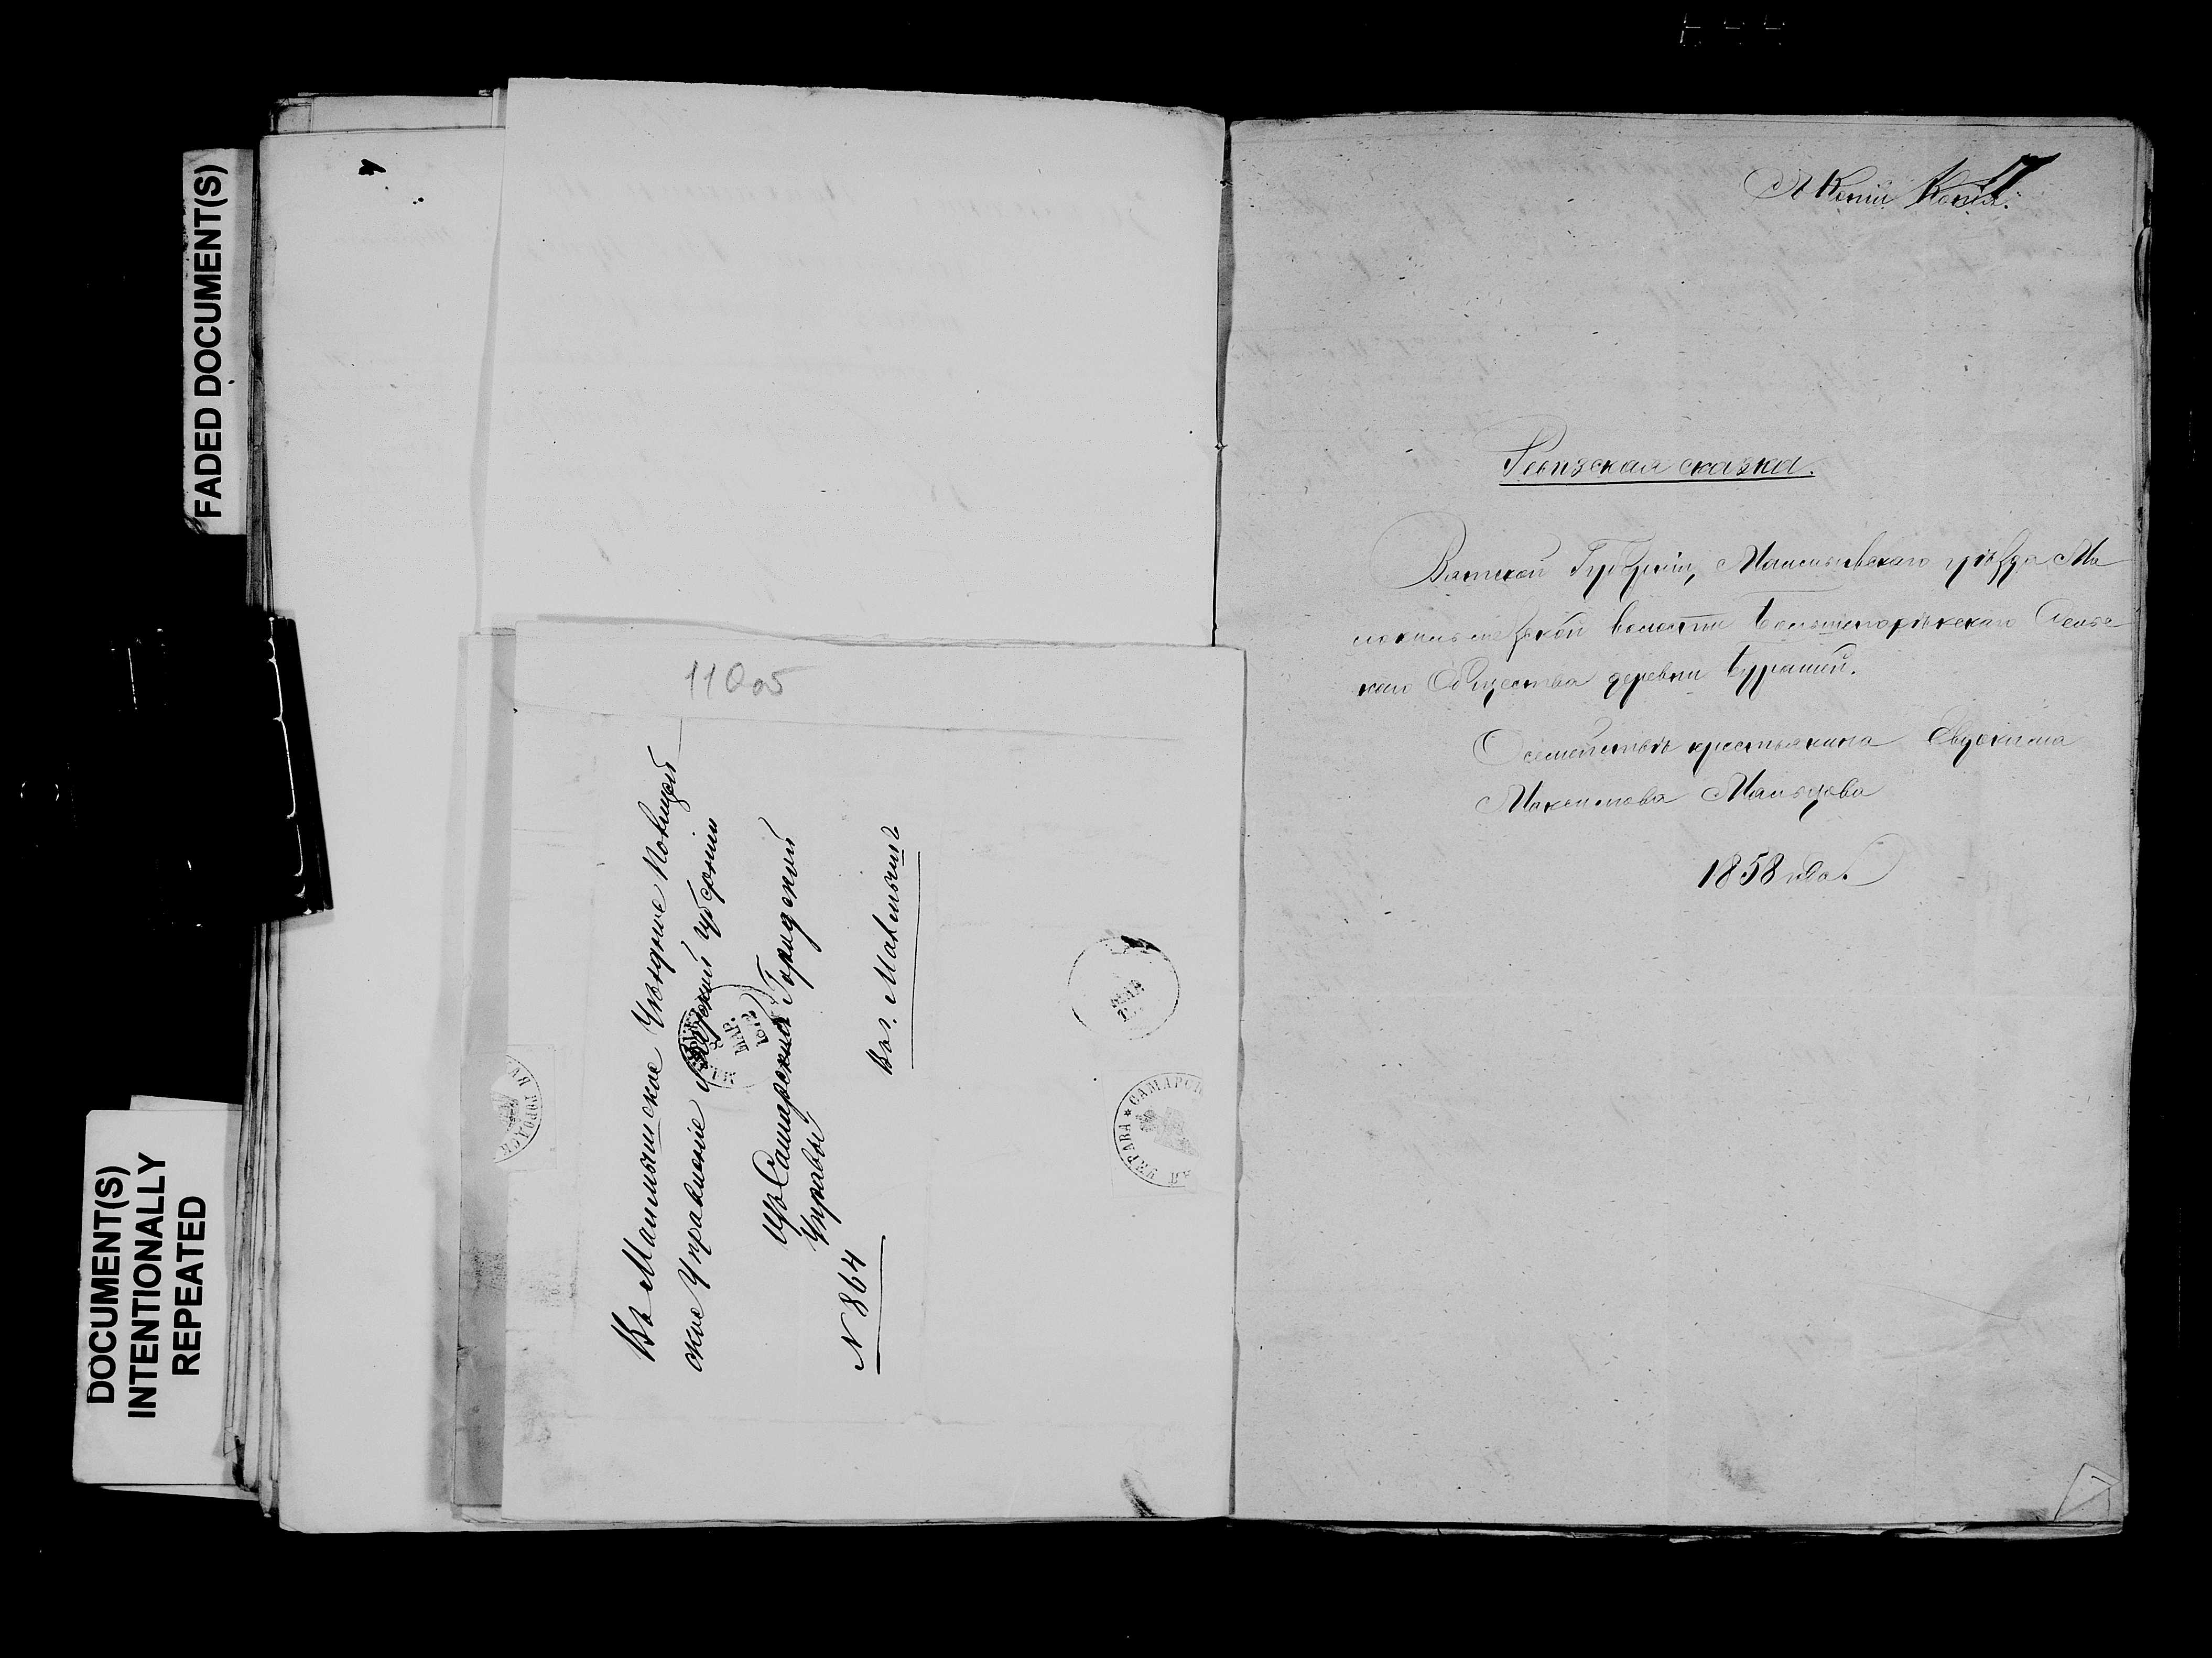 FADED DOCUMENT(S)
DOCUMENT(S)
INTENTIONALLY
REPEATED
110об
Въ Малмышское Уѣздное Полицей
ское Управленіе Вятской губерніи
изъ Самарской Городской
Управы
№ 864
Въ г. Малмышъ
МАР.
САМАРСК
УПРАВА
Съ Копіи Копія.
Ревизская сказка.
Вятской Губерніи, Малмыжскаго уѣзда Ма
волости Сельс
каго Общества деревни
О семействѣ крестьянина Евдокима
Максимова Мальцова
1858 года.